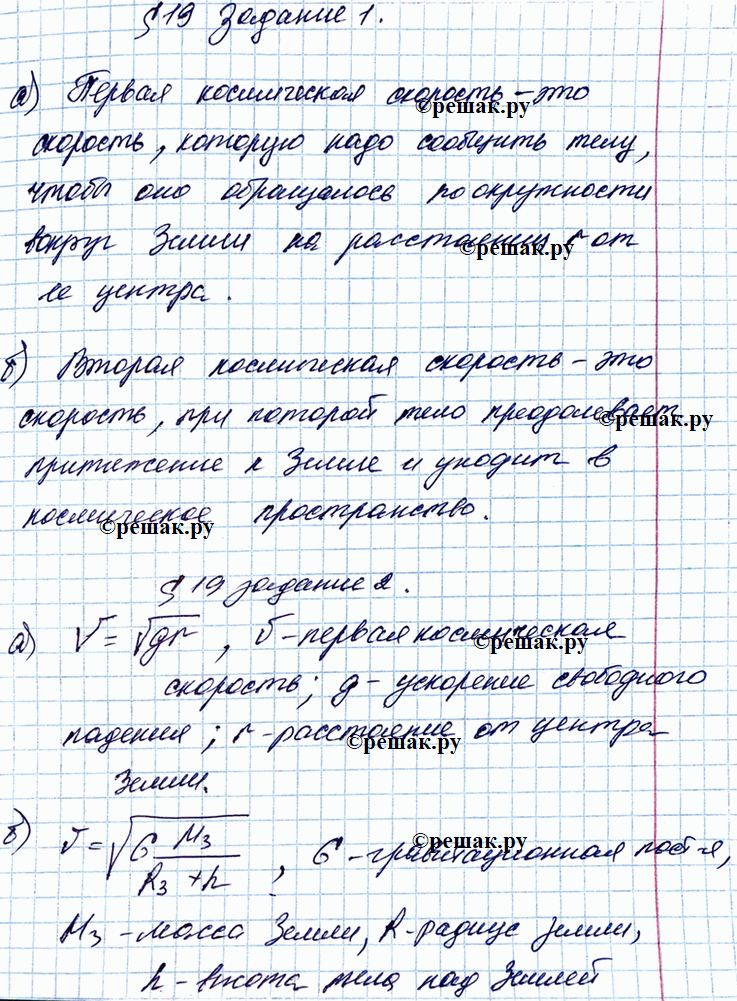 §19 Задание 1.
а) Первая космическая скорость – это
©решак.ру
скорость, которую надо сообщить телу,
чтобы оно обращалось по окружности
вокруг Земли на расстоянии r от
©решак.ру
ее центра.
б) Вторая космическая скорость – это
скорость, при которой тело преодолевает
©решак.ру
притяжение к Земле и уходит в
космическое пространство.
©решак.ру
§19 задание 2.
а) V = √gr, v – первая космическая
©решак.ру
скорость; g – ускорение свободного
падения; r – расстояние от центра
©решак.ру
Земли.
б) v = √(G Mз / (Rз + h)), G – гравитационная пост-я,
©решак.ру
Mз – масса Земли, R – радиус Земли,
h – высота тела над Землей